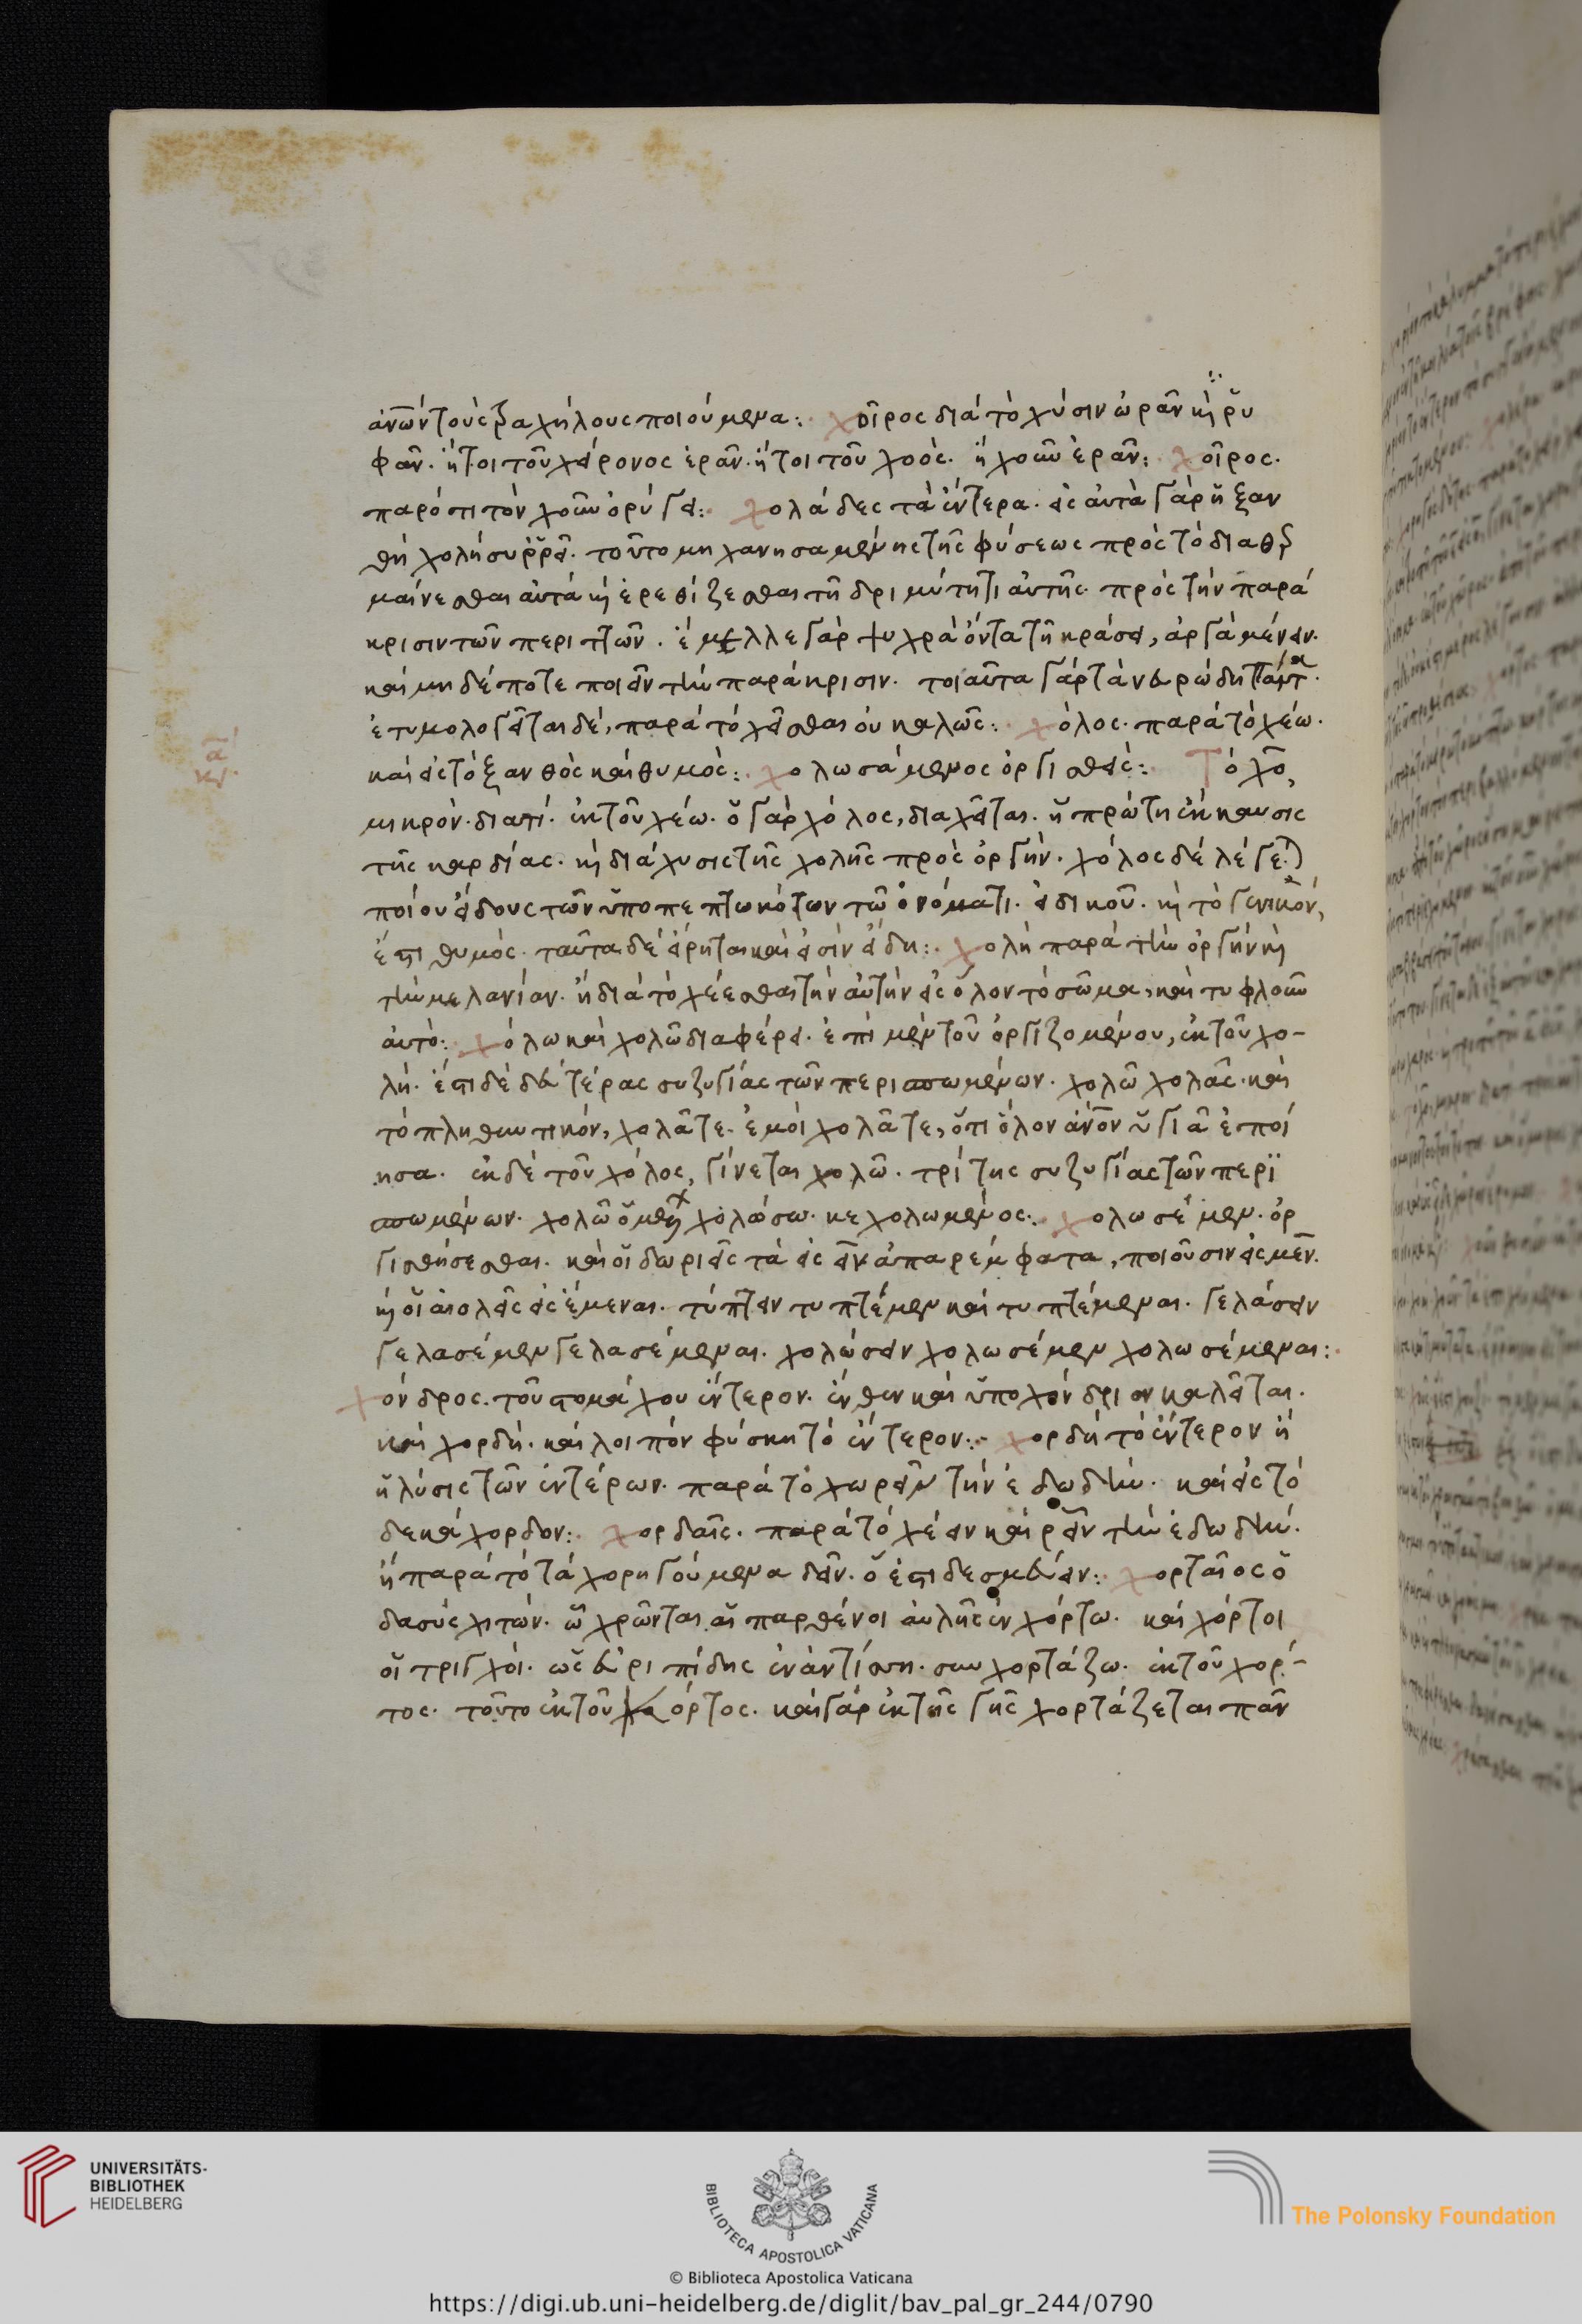 ἀνω̄ν τοὺς τραχήλους ποιούμενα: χοῖρος διὰ τὸ χύσιν ὠρᾶν κὶ ῥυ
φᾶν. ἤτοι τοῦ χείρονος ἐρᾶν. ἤτοι τοῦ χοός. ἢ χοῦν ἐρᾶν: χοῖρος.
παρότι τὸν χοῦν ὀρύγει: χολάδες τὰ ἔντερα. εἰς αὐτὰ γὰρ ἡ ξαν
θὴ χολὴ συῤῥεῖ. τοῦτο μηχανησαμένης τῆς φύσεως πρὸς τὸ διαθερ
μαίνεσθαι αὐτὰ κὶ ἐρεθίζεσθαι τῆ δριμύτητι αὐτῆς. πρὸς τὴν παρά
κρισιν τῶν περιττῶν. ἔμελλε γὰρ ψυχρὰ ὄντα τῆ κράσει, ἀργὰ μένειν.
καὶ μηδέποτε ποιεῖν τὴν παράκρισιν. τοιαῦτα γὰρ τὰ νευρώδη πάντα.
ἐτυμολογεῖται δὲ, παρὰ τὸ χεῖσθαι οὐ καλῶς: χόλος. παρὰ τὸ χέω.
καὶ εἰς τὸ ξανθὸς καὶ θυμός: χολωσάμενος ὀργισθείς: Τὸ χο,
μικρόν. διατί. ἐκ τοῦ χέω. ὁ γὰρ χόλος, διαχεῖται. ἡ πρώτη ἔκκαυσις
τῆς καρδίας. κὶ διάχυσις τῆς χολῆς πρὸς ὀργήν. χόλος δὲ λέγε)
ποίου εἴδους τῶν ὑποπεπτωκότων τῶ ὀνόματι. εἰδικοῦ. κὶ τὸ γενικόν,
ἔστι θυμός. ταῦτα δὲ εἴρηται καὶ εἰσὶν εἴδη: χολὴ παρὰ τὴν ὀργὴν κὶ
τὴν μελανίαν. ἢ διὰ τὸ χέεσθαι τὴν αὐτὴν εἰς ὅλον τὸ σῶμα, καὶ τυφλοῦν
αὐτό: χόλω καὶ χολῶ διαφέρει. ἐπὶ μὲν τοῦ ὀργιζομένου, ἐκ τοῦ χο-
λή. ἔστι δὲ δευτέρας συζυγίας τῶν περισπωμένων. χολῶ χολᾶς. καὶ
τὸ πληθυντικόν, χολᾶτε. ἐμοὶ χολᾶτε, ὅτι ὅλον ἀν̄ον ὑγιᾶ ἐποί
ησα. ἐκ δὲ τοῦ χόλος, γίνεται χολῶ. τρίτης συζυγίας τῶν περϊ
σπωμένων. χολῶ ὁ μέλλων χολώσω. κεχολωμένος: χολωσέμεν. ὀρ
γισθήσεσθαι. καὶ οἱ δωριεῖς τὰ εἰς ειν ἀπαρέμφατα, ποιοῦσιν εἰς μεν.
κὶ οἱ αἰολεῖς εἰς έμεναι. τύπτειν τυπτέμεν καὶ τυπτέμεναι. γελάσειν
γελασέμεν γελασέμεναι. χολώσειν χολωσέμεν χολωσέμεναι:
χόνδρος. τοῦ στομάχου ἔντερον. ἔνθεν καὶ ὑποχόνδριον καλεῖται.
καὶ χορδή. καὶ λοιπὸν φύσκη τὸ ἔντερον: χορδὴ τὸ ἔντερον ἢ
ἡ λύσις τῶν ἐντέρων. παρὰ τὸ χωρεῖν τὴν ἐδωδήν. καὶ εἰς τὸ
δεκάχορδον: χορδαῖς. παρὰ τὸ χέειν καὶ ῥεῖν τὴν ἐδωδήν.
ἢ παρὰ τὸ τὰ χορηγούμενα δεῖν. ὅ ἐστι δεσμεύειν: χορταῖος ὁ
δασὺς χιτών. ὧ χρῶνται αἱ παρθένοι αὐλῆς ἐν χόρτω. καὶ χόρτοι
οἱ τριγχοί. ὡς εὐριπίδης ἐν ἀντιόπη. συγχορτάζω. ἐκ τοῦ χόρ-
τος. τοῦτο ἐκ τοῦ χόρτος. καὶ γὰρ ἐκ τῆς γῆς χορτάζεται πᾶν
UNIVERSITÄTS-
BIBLIOTHEK
HEIDELBERG
BIBLIOTECA APOSTOLICA VATICANA
The Polonsky Foundation
© Biblioteca Apostolica Vaticana
https://digi.ub.uni-heidelberg.de/diglit/bav_pal_gr_244/0790